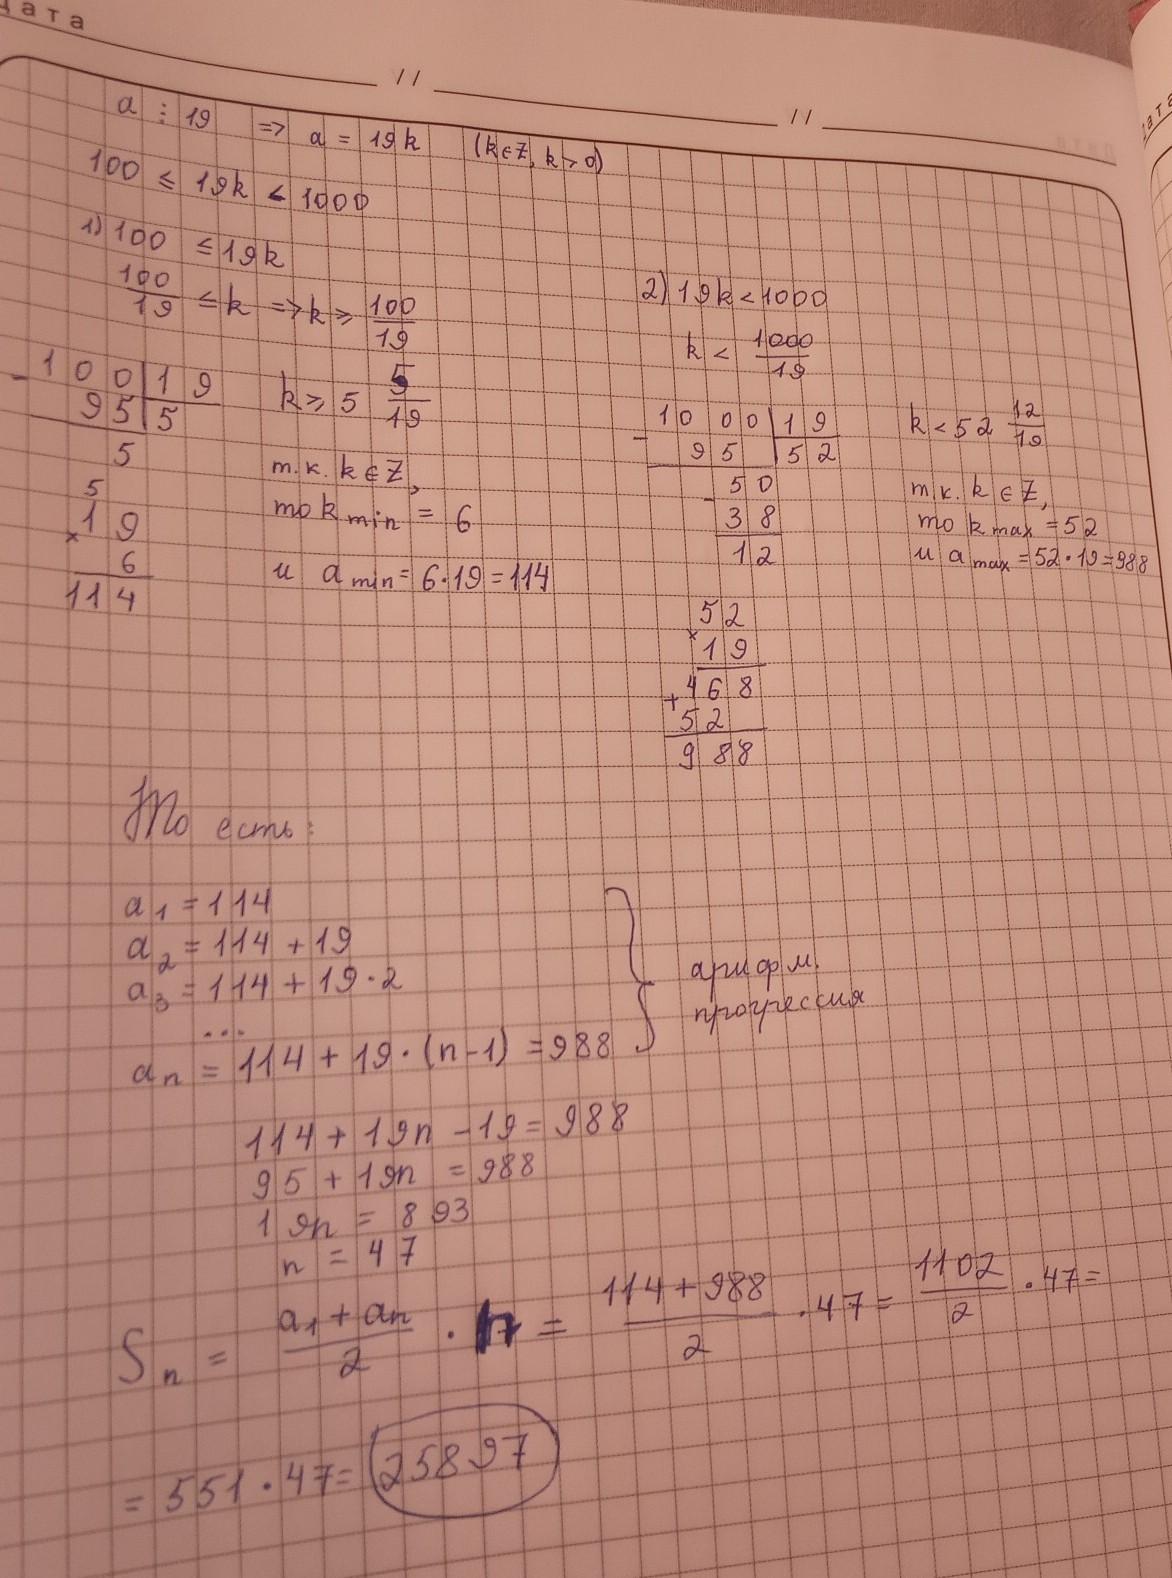 дата
/ /
/ /
a ⋮ 19 => a = 19k (k∈Z, k>0)
100 ≤ 19k < 1000
1) 100 ≤ 19k
100/19 ≤ k => k ≥ 100/19
100 | 19
- 95 | 5
5
k ≥ 5 5/19
т.к. k∈Z,
то k min = 6
и a min = 6·19 = 114
5
19
× 6
114
2) 19k < 1000
k < 1000/19
1000 | 19
- 95 | 52
50
- 38
12
k < 52 12/19
т.к. k ∈ Z,
то k max = 52
и a max = 52·19 = 988
52
× 19
468
+ 52
988
То есть:
a1 = 114
a2 = 114 + 19
a3 = 114 + 19·2
...
an = 114 + 19·(n-1) = 988
арифм.
прогрессия
114 + 19n - 19 = 988
95 + 19n = 988
19n = 893
n = 47
Sn = (a1 + an)/2 · n = (114 + 988)/2 · 47 = 1102/2 · 47 =
= 551 · 47 = 25897